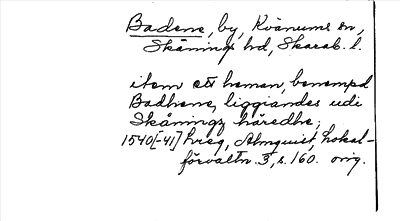 Badene, by, Kvänums sn,
Skånings hd, Skarab. l.
item ett heman, benempd
Badhene, liggiandes udi
Skåningz häredhe;
1540[-41] hreg, Almquist, Lokal-
förvaltn. 3, s. 160. orig.